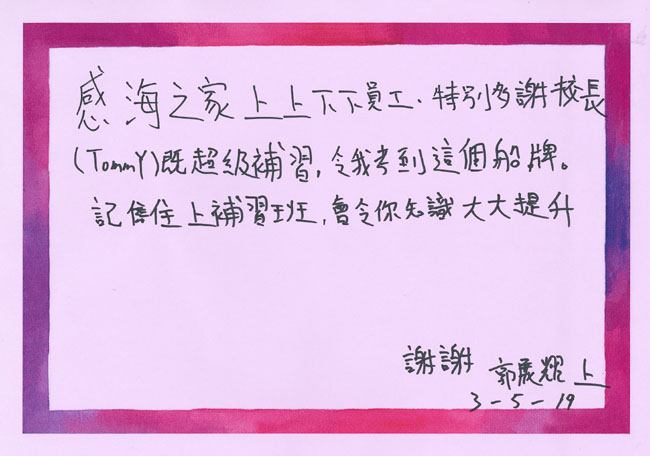 感海之家上上下下員工、特別多謝校長
(Tommy)既超級補習,令我考到這個船牌。
記住上補習班,會令你知識大大提升
謝謝 郭展耀 上
3-5-19